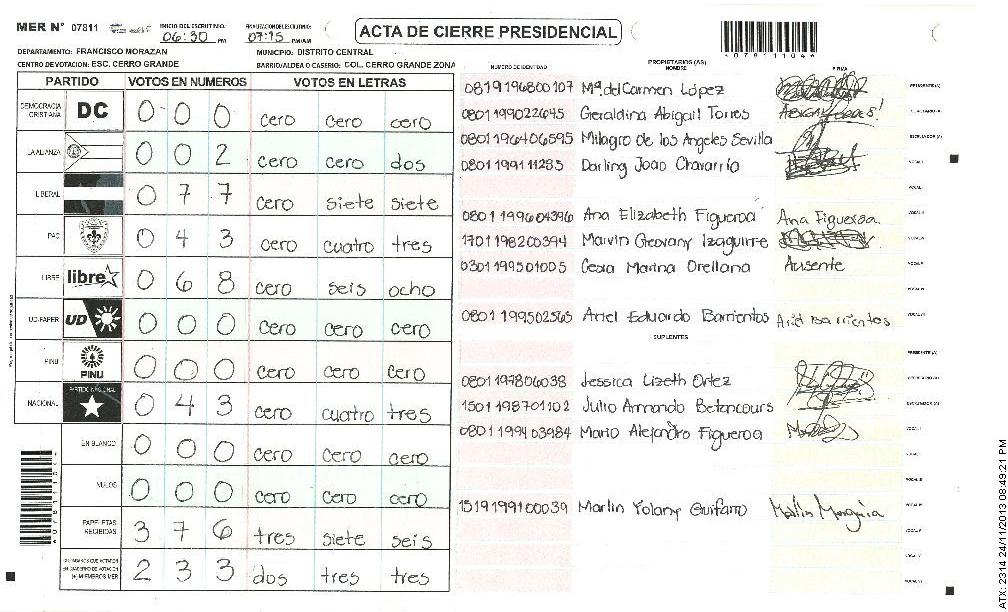 MER N° 07811 INICIO DEL ESCRUTINIO: 06:30 PM FINALIZACION DEL ESCRUTINIO: 07:15 PM/AM ACTA DE CIERRE PRESIDENCIAL
*078111046*
DEPARTAMENTO: FRANCISCO MORAZAN MUNICIPIO: DISTRITO CENTRAL
CENTRO DE VOTACION: ESC. CERRO GRANDE BARRIO/ALDEA O CASERIO: COL. CERRO GRANDE ZONA
PARTIDO VOTOS EN NUMEROS VOTOS EN LETRAS
DEMOCRACIA CRISTIANA DC 0 0 0 cero cero cero
LA ALIANZA 0 0 2 cero cero dos
LIBERAL 0 7 7 cero siete siete
PAC 0 4 3 cero cuatro tres
LIBRE libre 0 6 8 cero seis ocho
UD-FAPER UD 0 0 0 cero cero cero
PINU PINU 0 0 0 cero cero cero
NACIONAL PARTIDO NACIONAL 0 4 3 cero cuatro tres
EN BLANCO 0 0 0 cero cero cero
NULOS 0 0 0 cero cero cero
PAPELETAS RECIBIDAS 3 7 6 tres siete seis
CIUDADANOS QUE VOTARON EN CUADERNO DE VOTACION (+) MIEMBROS MER 2 3 3 dos tres tres
NUMERO DE IDENTIDAD PROPIETARIOS (AS) NOMBRE FIRMA
0819196800107 Mª del Carmen López PRESIDENTE (A)
0801199022645 Geraldina Abigail Torres SECRETARIO (A)
0801196406595 Milagro de los Angeles Sevilla ESCRUTADOR (A)
0801199111283 Darling Joao Chavarría VOCAL I
0801199604396 Ana Elizabeth Figueroa Ana Figueroa
1701198200394 Marvin Geovany Izaguirre
0301199501005 Cesia Marina Orellana Ausente
0801199502565 Ariel Eduardo Barrientos Ariel Barrientos
SUPLENTES
PRESIDENTE (A)
0801197806038 Jessica Lizeth Ortez SECRETARIO (A)
1501198701102 Julio Armando Betancours ESCRUTADOR (A)
0801199403984 Mario Alejandro Figueroa VOCAL I
1519199100039 Marlin Yolany Guifarro
ATX: 2314 24/11/2013 08:49:21 PM